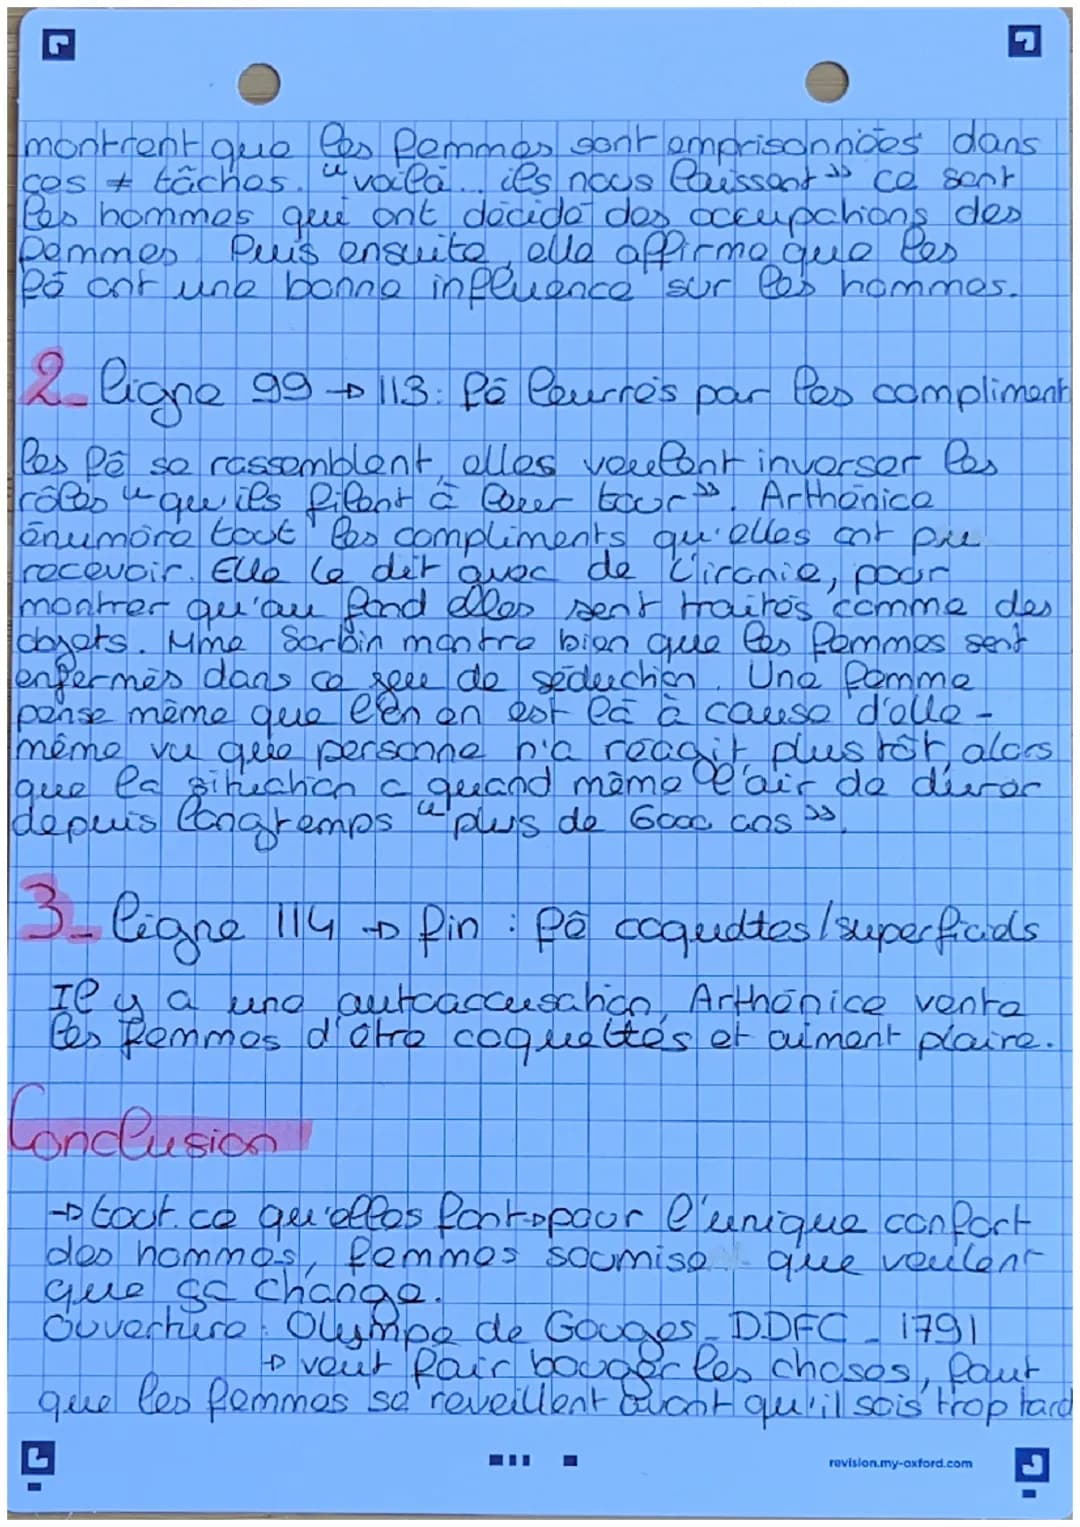 montrent que les femmes sont emprisonnées dans
ces ≠ tâches. "voilà... ils nous laissent" ce sont
les hommes qui ont décidé des occupations des
femmes. Puis ensuite, elle affirme que les
fē ont une bonne influence sur les hommes.
2_ ligne 99 → 113 : fē leurrés par les compliment
les fē se rassemblent, elles veulent inverser les
rôles "qu'ils filent à leur tour". Arthénice
énumère tout les compliments qu'elles ont pu
recevoir. Elle le dit avec de l'ironie, pour
montrer qu'au fond elles sont traités comme des
objets. Mme Sorbin montre bien que les femmes sont
enfermés dans ce jeu de séduction. Une femme
pense même que l'en en est là à cause d'elle-
même vu que personne n'a réagit plus tôt, alors
que la situation a quand même l'air de durer
depuis longtemps "plus de 6000 ans".
3_ ligne 114 → fin : fē coquettes/superficiels
Il y a une autoaccusation, Arthénice vente
les femmes d'être coquettes et aiment plaire.
Conclusion
→ tout ce qu'elles font → pour l'unique confort
des hommes, femmes soumise que veulent
que ça change.
Ouverture : Olympe de Gouges _ DDFC _ 1791
→ veut fair bouger les choses, faut
que les femmes se réveillent avant qu'il sois trop tard
revision.my-oxford.com